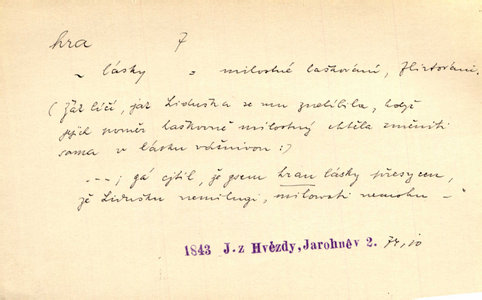 hra 7
~ lásky = milostné laškování, flirtování.
(Žář líčí, jak Liduška se mu znelíbila, když
jejich poměr laškovně milostný chtěla změniti
sama v lásku vážnivou:)
---; gá cjtil, že gsem hrau lásky přesycen,
že Lidušku nemilugi, milovati nemohu –
1843 J. z Hvězdy, Jarohněv 2.